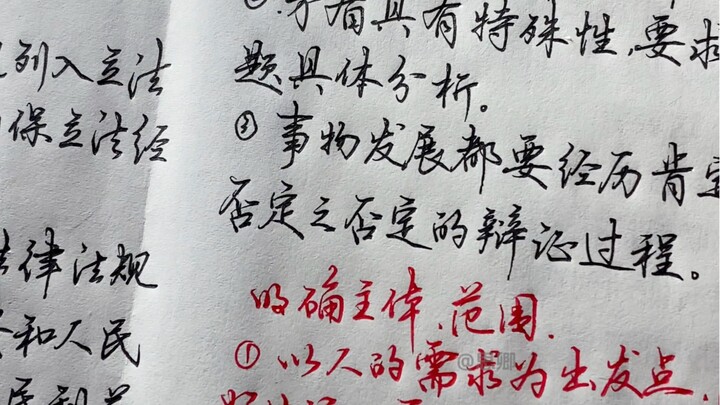 列入立法
保立法经
律法规
和人民
矛盾具有特殊性,要求
题具体分析。
③事物发展都要经历肯定
否定之否定的辩证过程。
明确主体、范围.
①以人的需求为出发点,